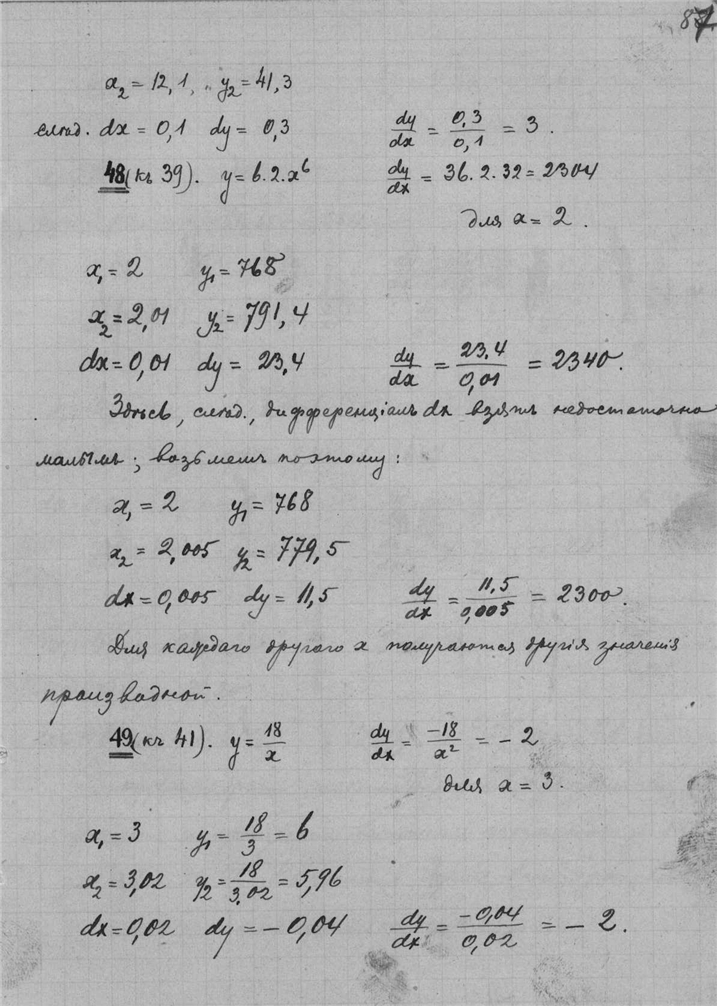 87
x₂ = 12,1, y₂ = 41,3
след. dx = 0,1 dy = 0,3 dy/dx = 0,3/0,1 = 3.
48 (къ 39). y = 6.2.x⁶ dy/dx = 36.2.32 = 2304
для x = 2.
x₁ = 2 y₁ = 768
x₂ = 2,01 y₂ = 791,4
dx = 0,01 dy = 23,4 dy/dx = 23,4/0,01 = 2340.
Здѣсь, след., дифференціалъ dx взятъ недостаточно
малымъ; возьмемъ поэтому:
x₁ = 2 y₁ = 768
x₂ = 2,005 y₂ = 779,5
dx = 0,005 dy = 11,5 dy/dx = 11,5/0,005 = 2300.
Для каждаго другаго x получаются другія значенія
производной.
49 (къ 41). y = 18/x dy/dx = -18/x² = - 2
для x = 3.
x₁ = 3 y₁ = 18/3 = 6
x₂ = 3,02 y₂ = 18/3,02 = 5,96
dx = 0,02 dy = - 0,04 dy/dx = -0,04/0,02 = - 2.